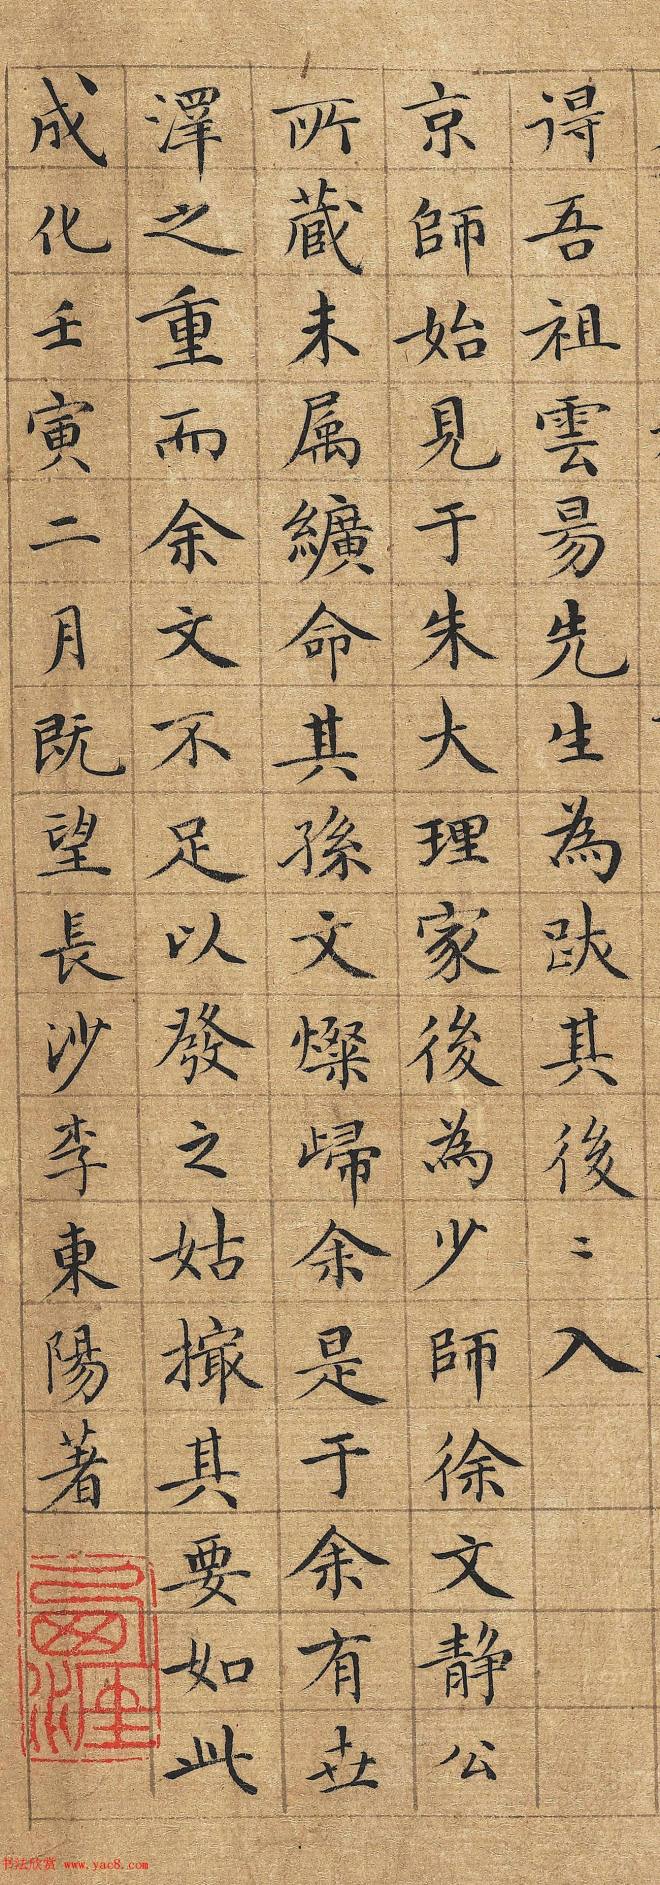 得吾祖雲昜先生為跋其後〻入
京師始見于朱大理家後為少師徐文靜公
所蔵未属纊命其孫文燦歸余是于余有世
澤之重而余文不足以發之姑撮其要如此
成化壬寅二月既望長沙李東陽著
西涯
书法欣赏 www.yac8.com